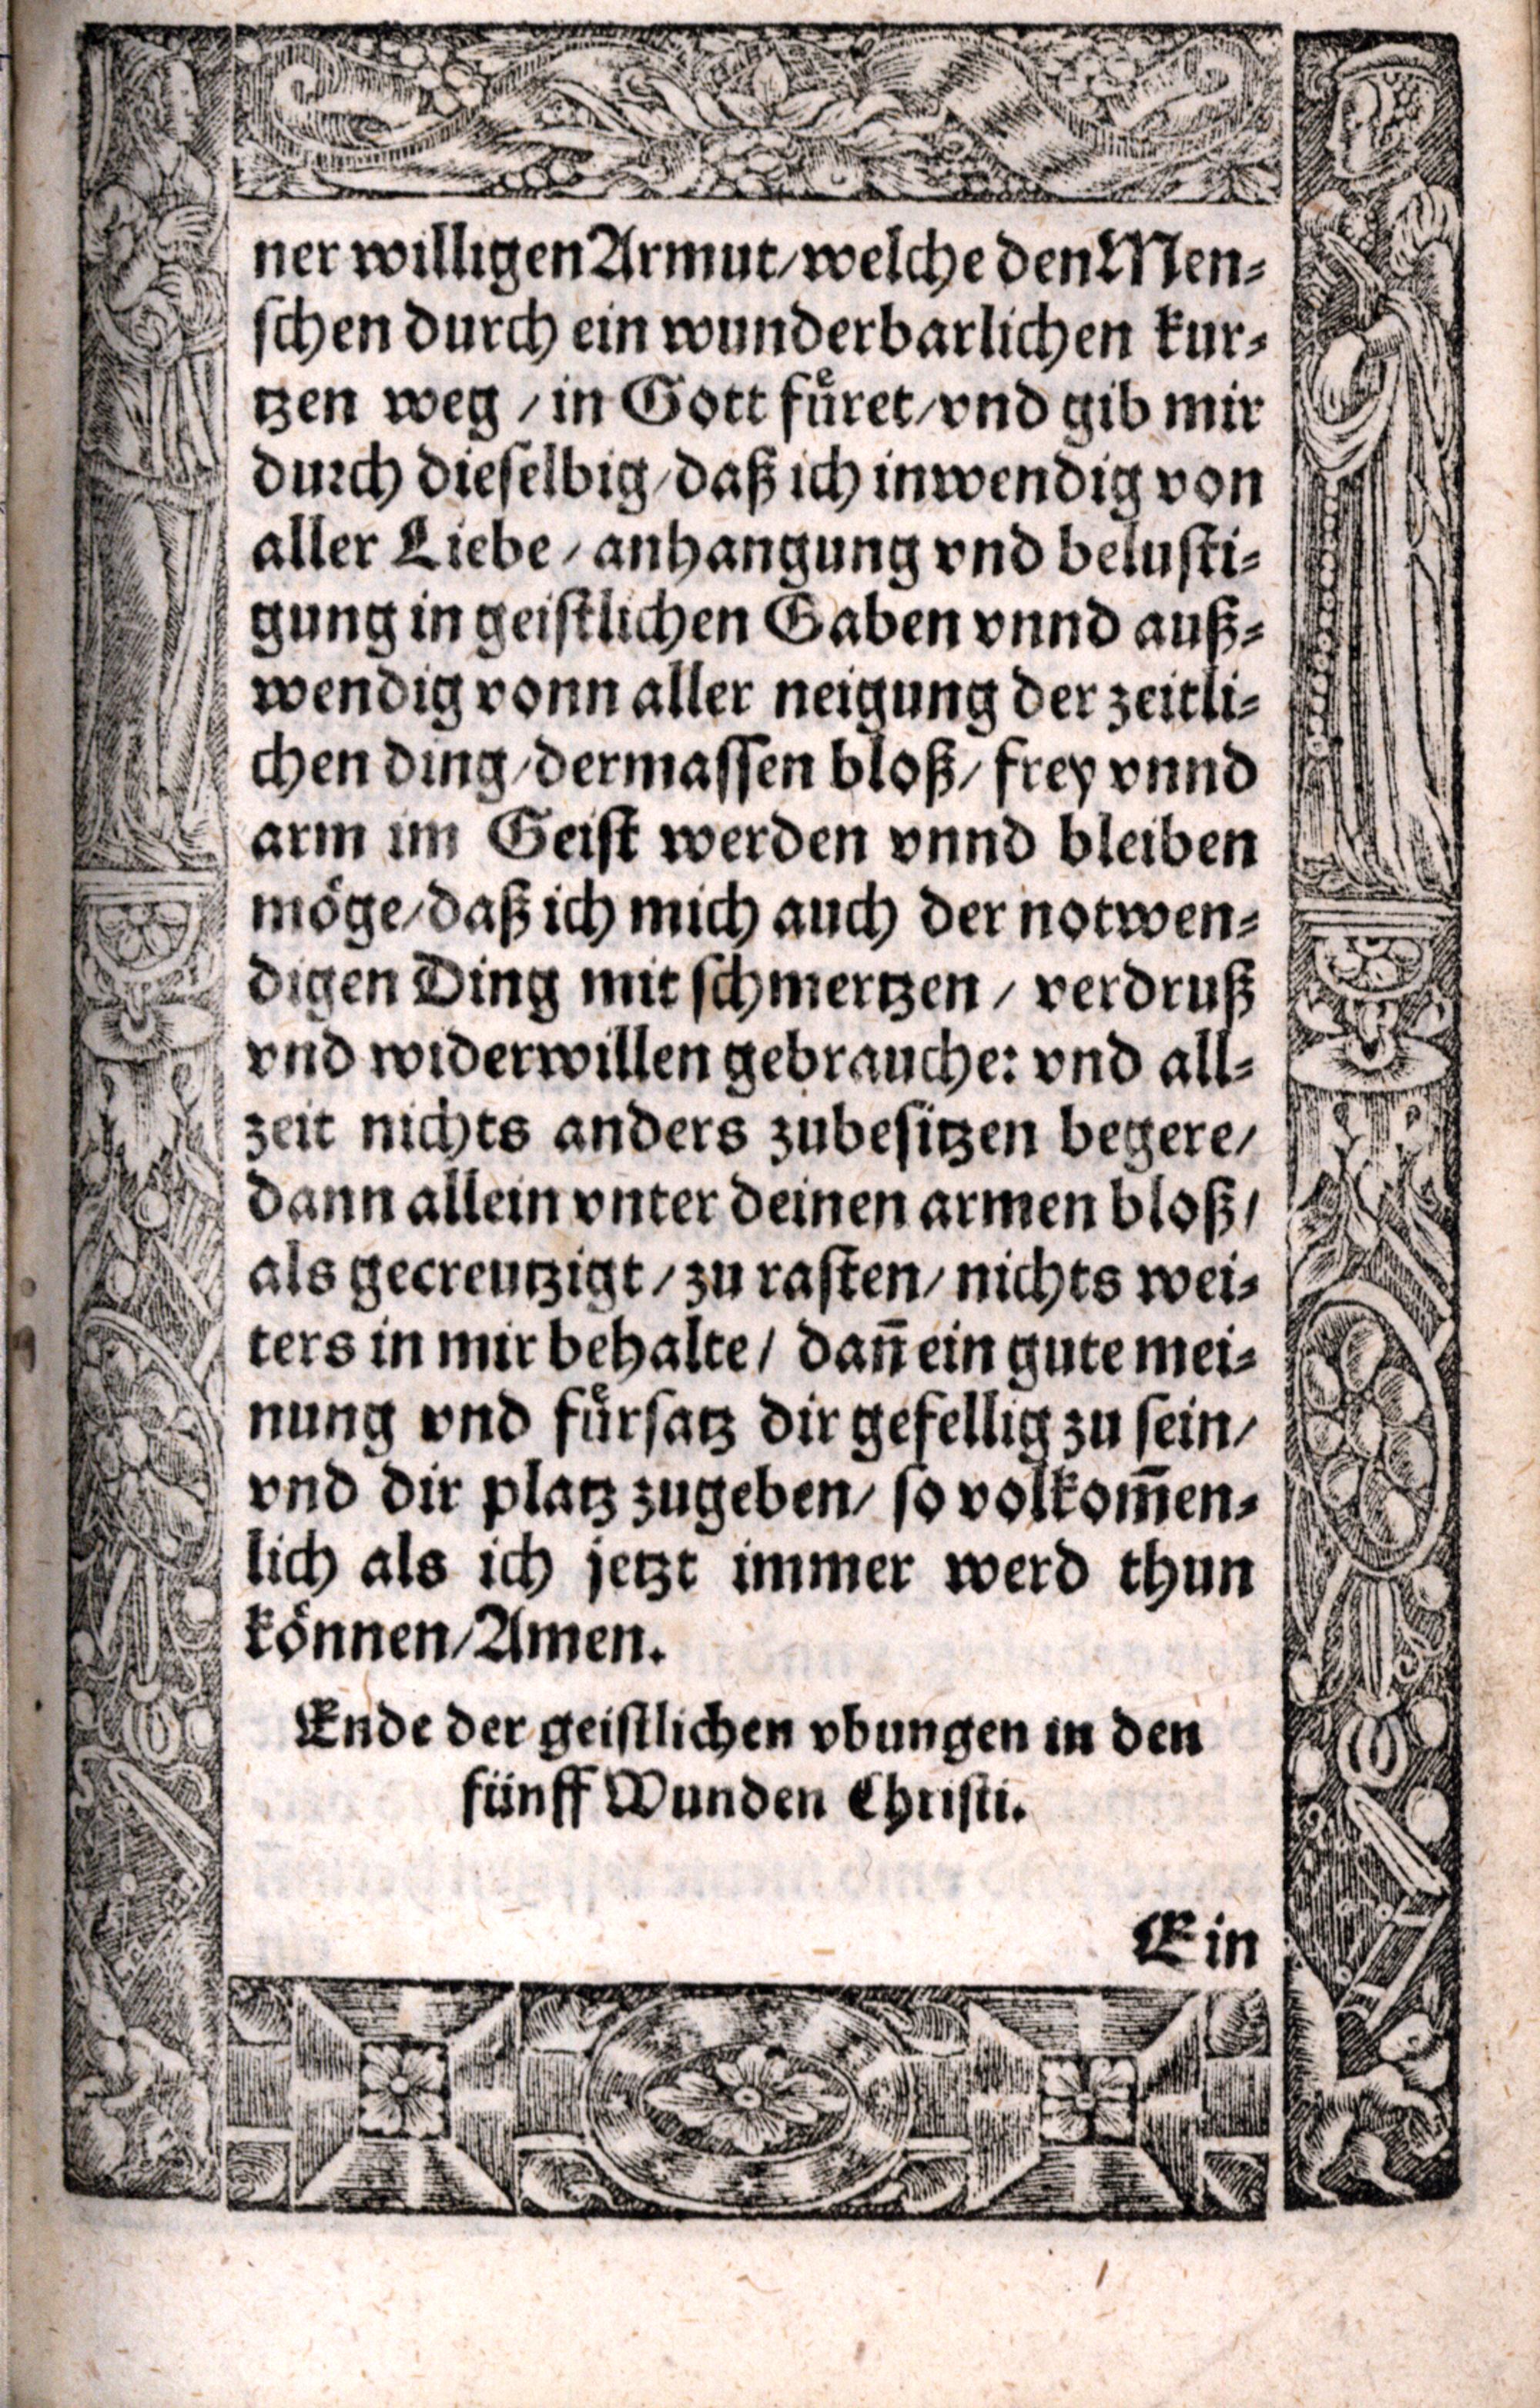 ner willigen Armut/welche den Men⸗
schen durch ein wunderbarlichen kur⸗
tzen weg / in Gott fuͤret/vnd gib mir
durch dieselbig/daß ich inwendig von
aller Liebe / anhangung vnd belusti⸗
gung in geistlichen Gaben vnnd auß⸗
wendig vonn aller neigung der zeitli⸗
chen ding/dermassen bloß/ frey vnnd
arm im Geist werden vnnd bleiben
moͤge/daß ich mich auch der notwen⸗
digen Ding mit schmertzen / verdruß
vnd widerwillen gebrauche: vnd all⸗
zeit nichts anders zubesitzen begere/
dann allein vnter deinen armen bloß/
als gecreutzigt / zu rasten/ nichts wei⸗
ters in mir behalte/ dañ ein gute mei⸗
nung vnd fuͤrsatz dir gefellig zu sein/
vnd dir platz zugeben/ so volkom̃en⸗
lich als ich jetzt immer werd thun
koͤnnen/Amen.
Ende der geistlichen vbungen in den
fünff Wunden Christi.
Ein